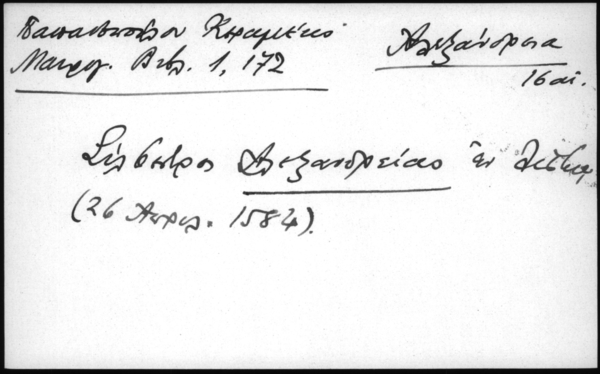 Παπαδοπούλου Κεραμέως
Μαυρογ. Βιβλ. 1, 172
Ἀλεξάνδρεια
16 αἰ.
Σίλβεστρος Ἀλεξανδρείας ἐν
(26 Ἀπριλ. 1584).